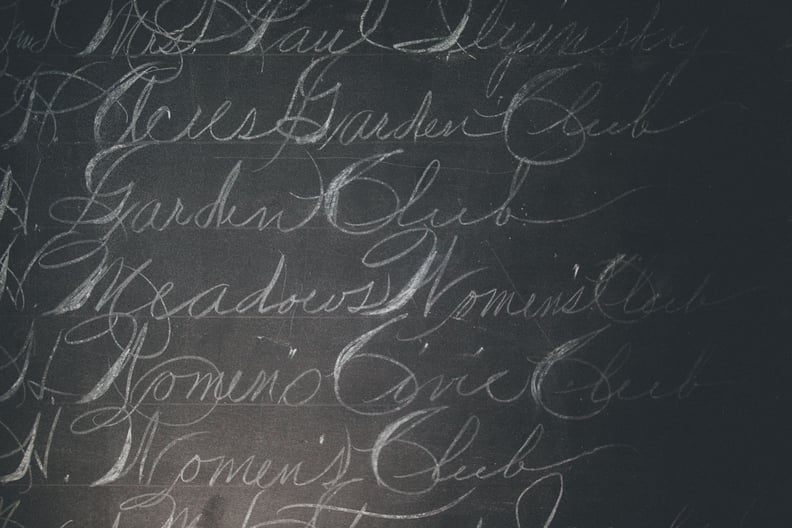 Mrs. Paul Ilyinsky
Acres Garden Club
Garden Club
Meadows Women's Club
Women's Civic Club
N. Women's Club